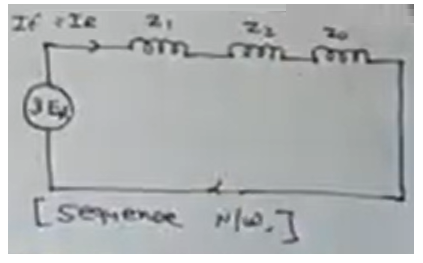 If = IR Z1 Z2 Z0
3Ea
[Sequence N/W.]